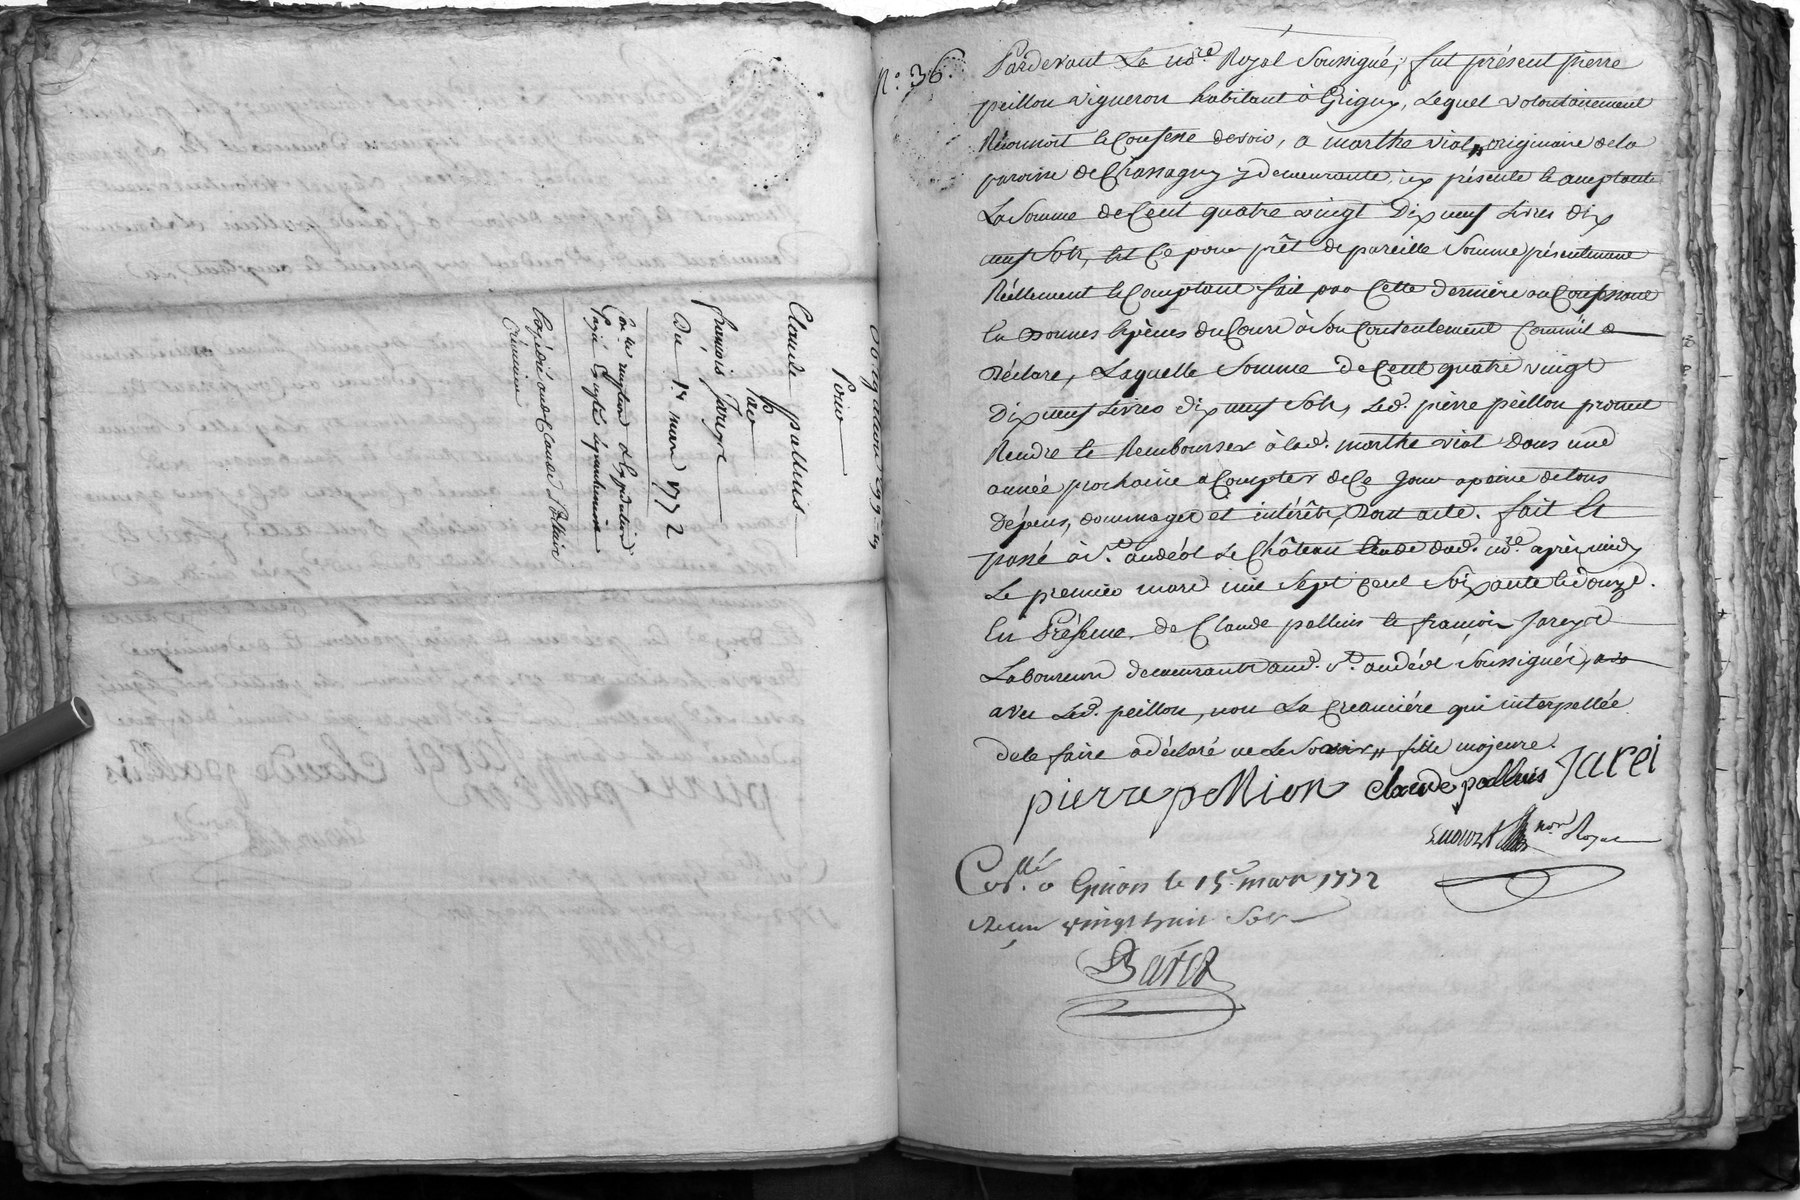 Obligation 299 ₶ 19
Pour
Claude palluis
Par
françois Jareyre
Du 1er mars 1772
Expédié aud. Claude Palluis
N.o 36.
Pardevant Le no.re Royal Soussigné, fut présent pierre
peillon vigneron habitant à Grigny, Lequel volontairement
Reconnoit et Confesse devoir, a marthe viol,, originaire de la
paroisse de Chassagny y demeurante, icy présente et acceptante
La Somme de Cent quatre vingt Dix neuf Livres dix
neuf Sols, Et Ce pour prêt de pareille Somme présentement
Réellement et Comptant fait par Cette derniére au Confessant
En Bonnes Espèces du Cours à Son Contentement Comme il a
Déclaré, Laquelle Somme de Cent quatre vingt
Dix neuf Livres dix neuf Sols, Led. pierre peillon promet
Rendre et Rembourser à lad. marthe viol Dans une
année prochaine a Compter de Ce Jour a peine de tous
Dépens, dommages et intérêts, Dont acte. fait Et
passé à S.t andéol Le Château Etude dud. no.re après midy
Le premier mars mil Sept Cent Soixante et douze.
En Présence de Claude palluis et françois Jareyre
Laboureurs demeurants aud. S.t andéol Soussignés,
avec Led. peillon, non La Creanciére qui interpellée
de le faire a déclaré ne Le Savoir,, fille majeure.
pierre pellion claude palluis Jarei
no.re Royal
Co.llé a Givors le 15e mars 1772
Reçu vingt huit Sols
Baret